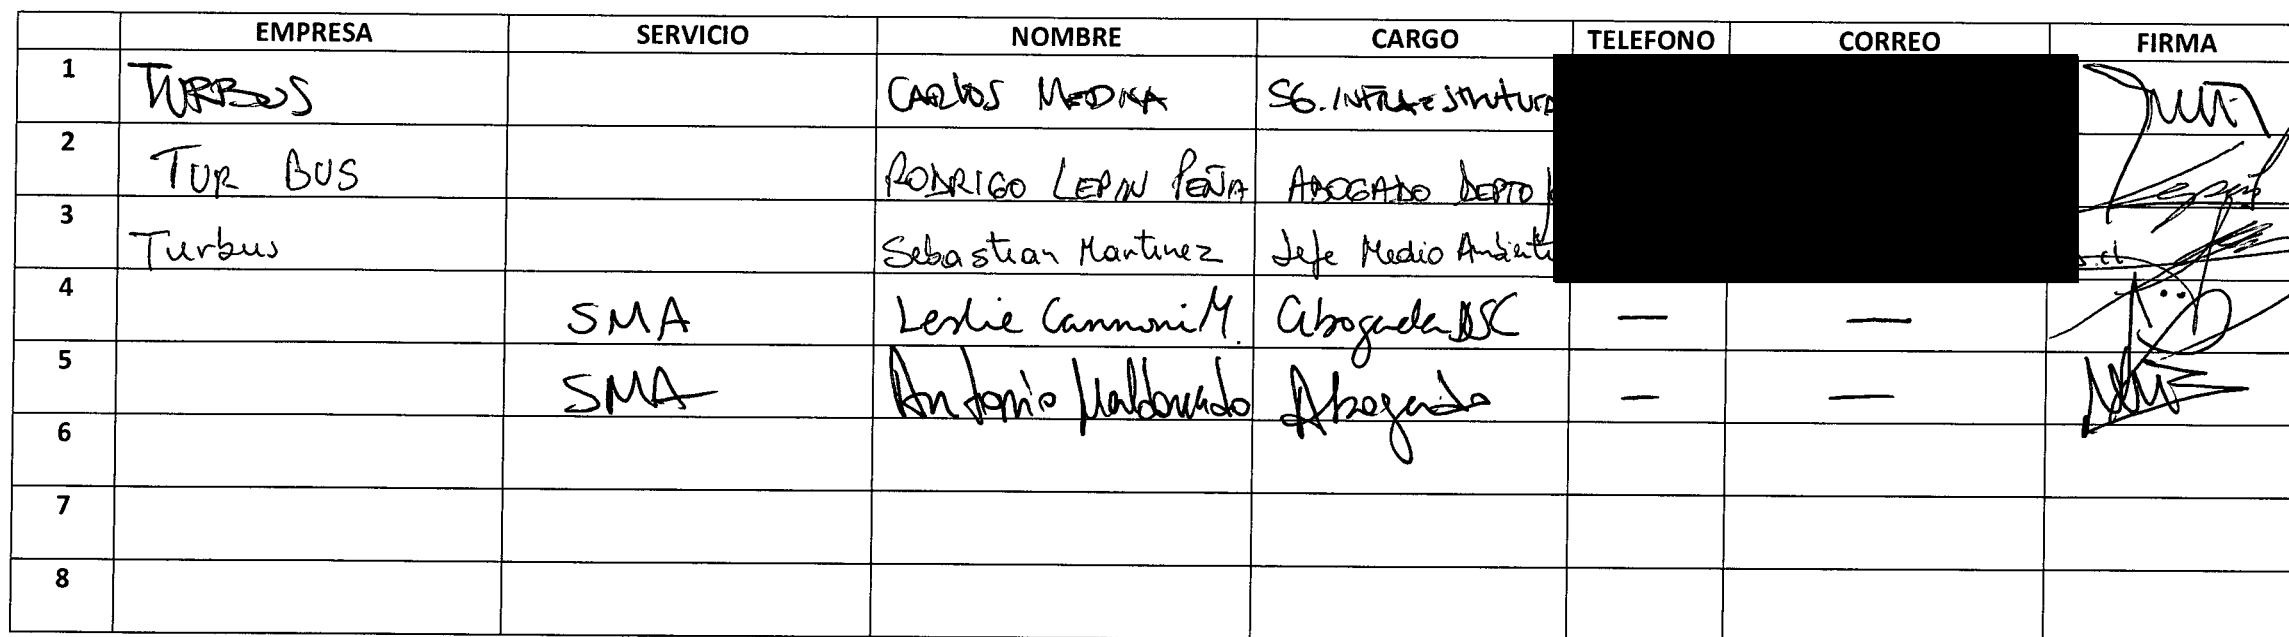 EMPRESA SERVICIO NOMBRE CARGO TELEFONO CORREO FIRMA
1 TURBUS CARLOS MEDINA SG. INFRAESTRUTURA
2 TUR BUS RODRIGO LEPIN PEÑA ABOGADO DEPTO
3 Turbus Sebastian Martinez Jefe Medio Ambiente s.cl
4 SMA Leslie Cannoni M. Abogada DSC — —
5 SMA Antonio Maldonado Abogado — —
6
7
8